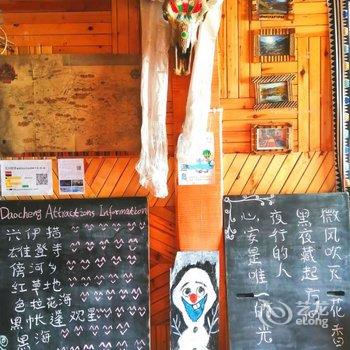 Daocheng Attractions Information
六伊措
雄登寺
傍河乡
红草地
色拉花海
黑帐篷 欢里
黑海
微风吹
花香
黑夜藏起方
夜行的人
心安是唯一的光
艺龙
eLong